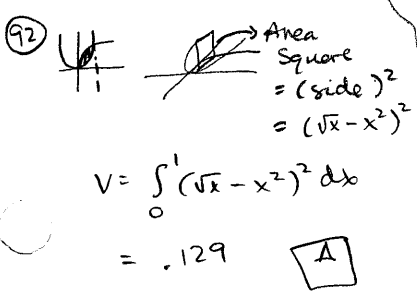 92
Area
Square
= (side)²
= (√x - x²)²
V = ∫₀¹ (√x - x²)² dx
= .129 A